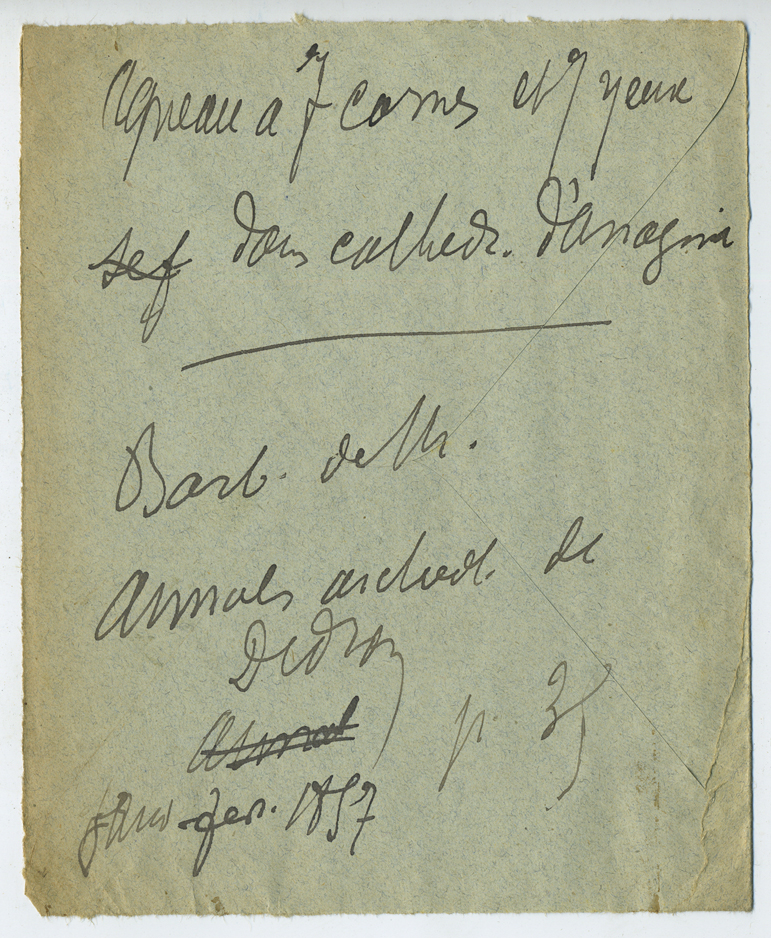 Agneau a 7 cornes et 7 yeux
dans cathedr. d'Anagni
Barb. de M.
Annales archeol. de
Didron
Annal p. 35
Janv fev. 1857